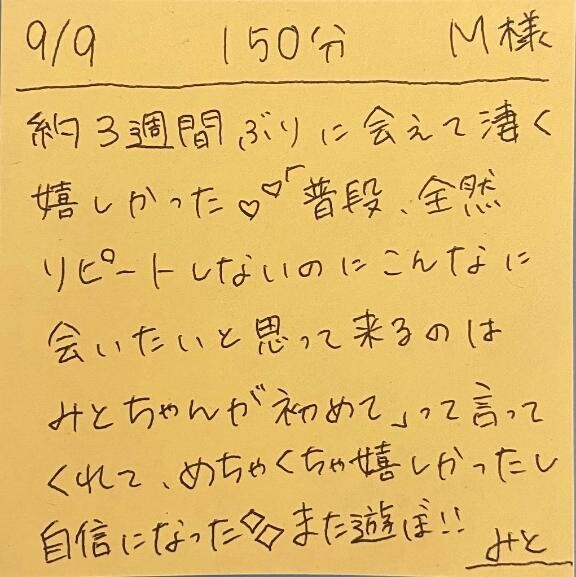 9/9 150分 M様
約3週間ぶりに会えて凄く
嬉しかった♡♡「普段、全然
リピートしないのにこんなに
会いたいと思って来るのは
みとちゃんが初めて」って言って
くれて、めちゃくちゃ嬉しかったし
自信になった◇◇また遊ぼ!!
みと